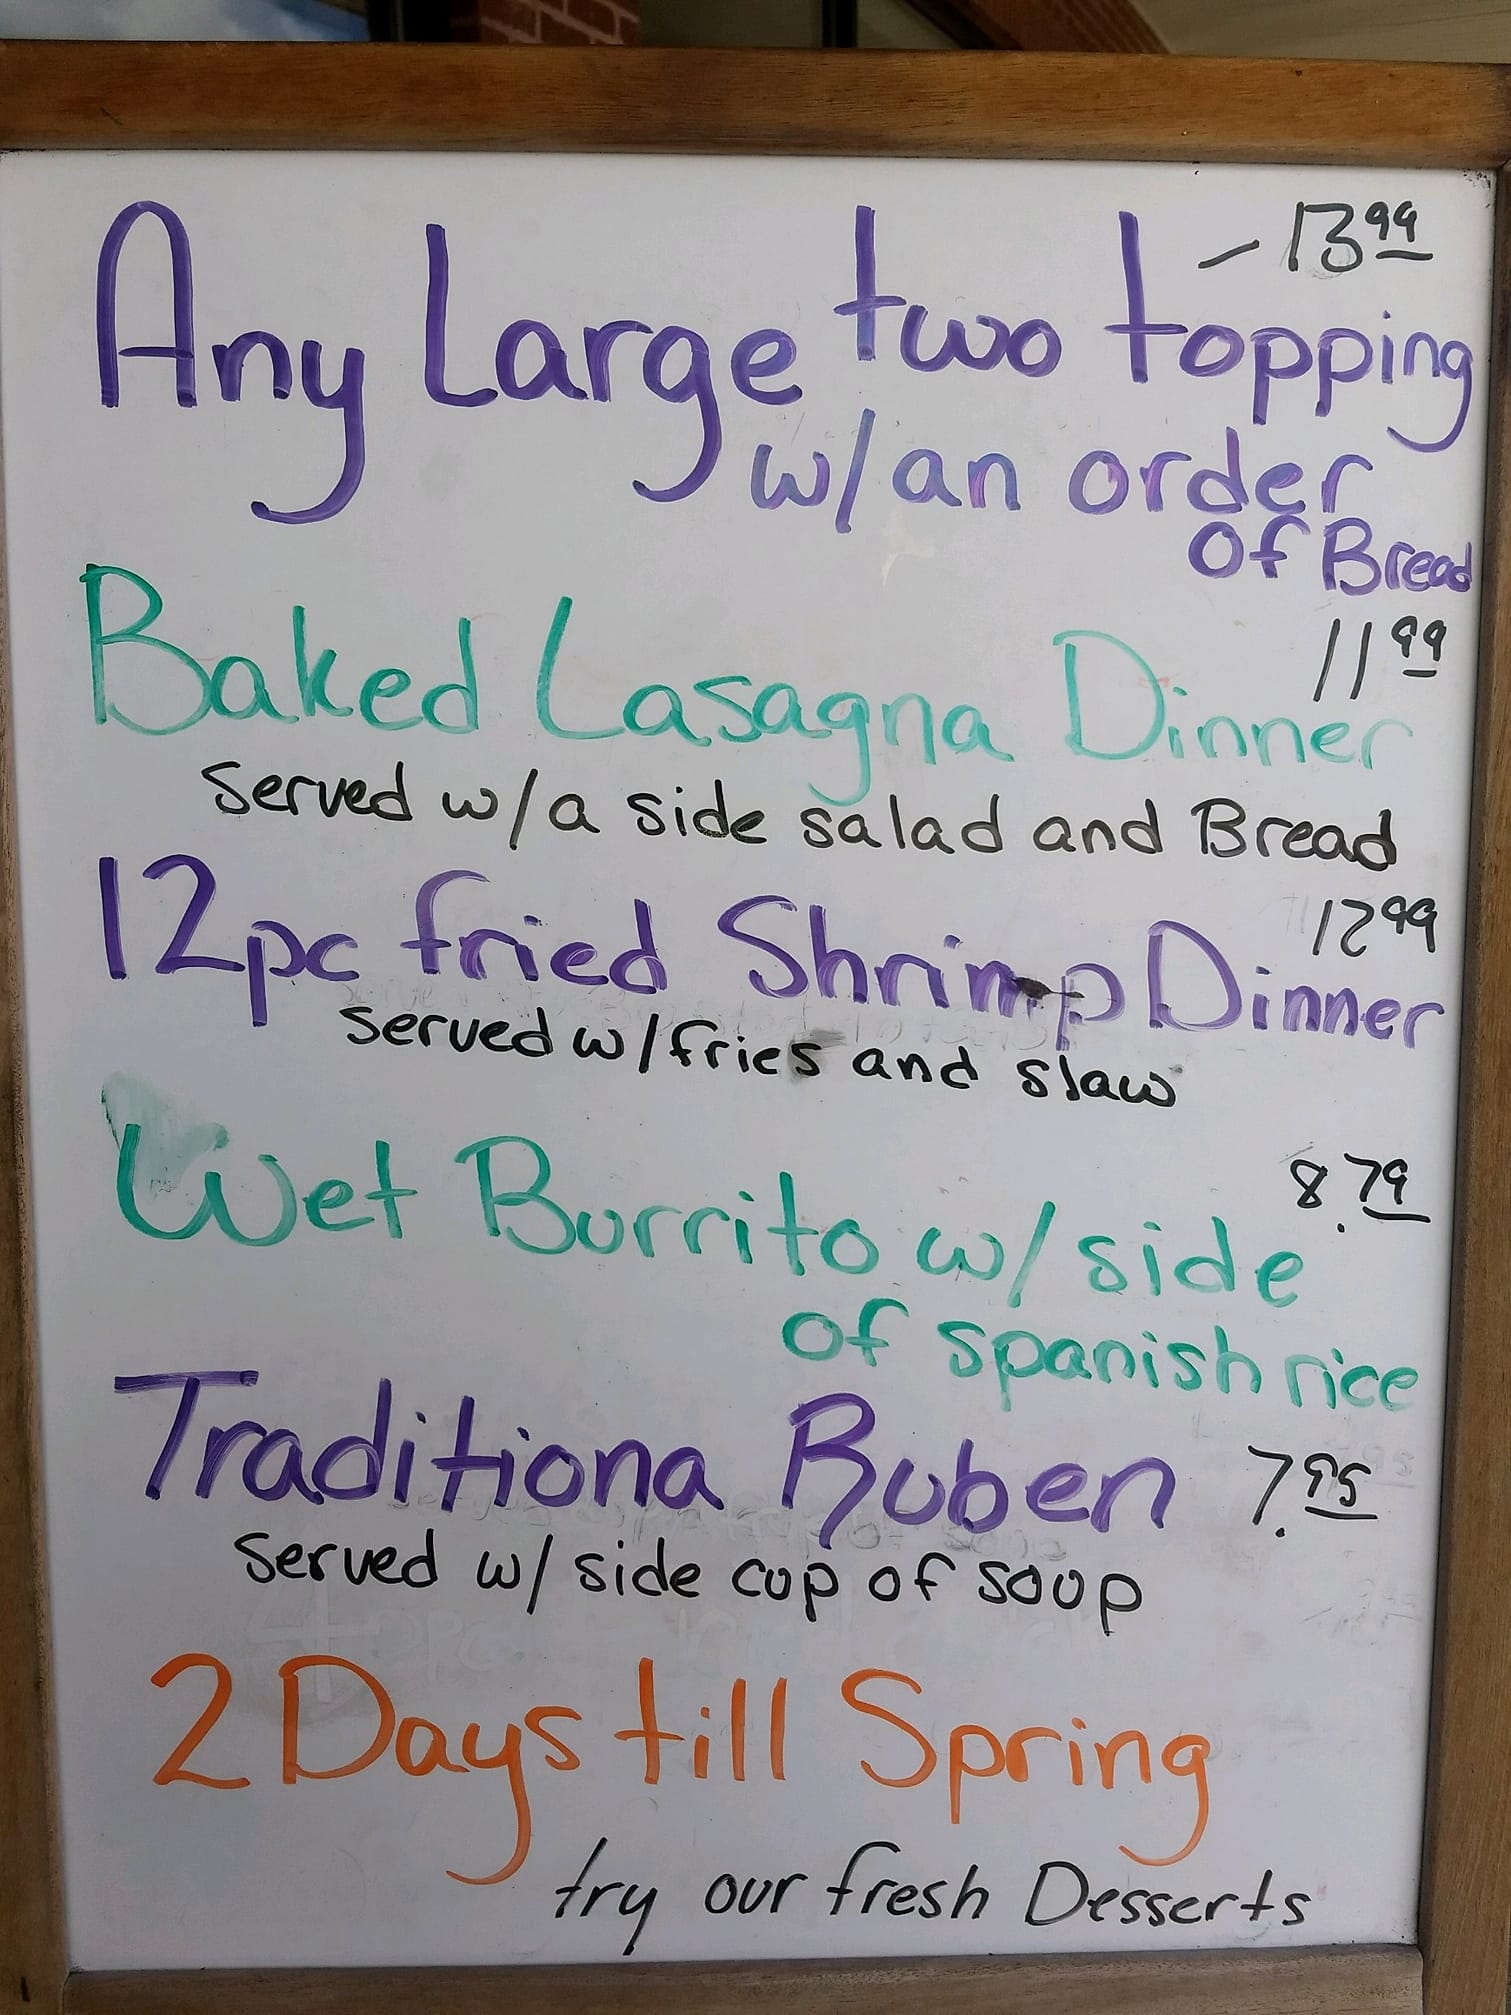 - 13.99
Any Large two topping
w/an order
of Bread
11.99
Baked Lasagna Dinner
Served w/a side salad and Bread
12.99
12pc fried Shrimp Dinner
Served w/fries and slaw
8.79
Wet Burrito w/side
of spanish rice
Traditiona Ruben 7.95
Served w/ side cup of soup
2 Days till Spring
try our fresh Desserts